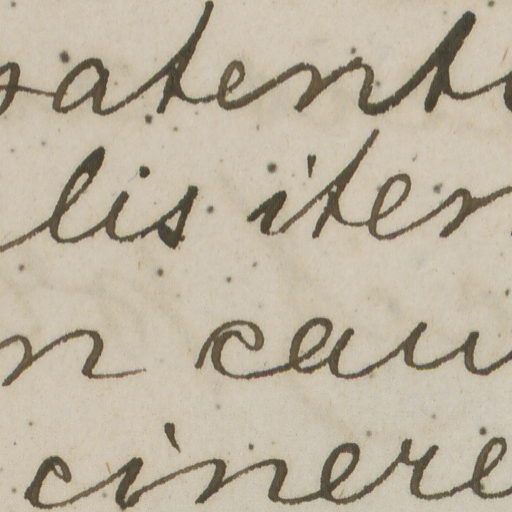 satent
lis iter
n cau
cinere